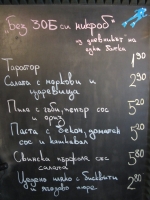 "Без ЗОБ си микроб"
из дневникът на
една бабка
Таратор 1,90
Салата с моркови и
царевица 2,90
Пиле с гъби, пипер сос
и ориз 5,20
Паста с бекон, доматен
сос и кашкавал 5,20
Свинска пържола със
салата 5,80
Цедено мляко с бисквити
и ягодово пюре 2,80